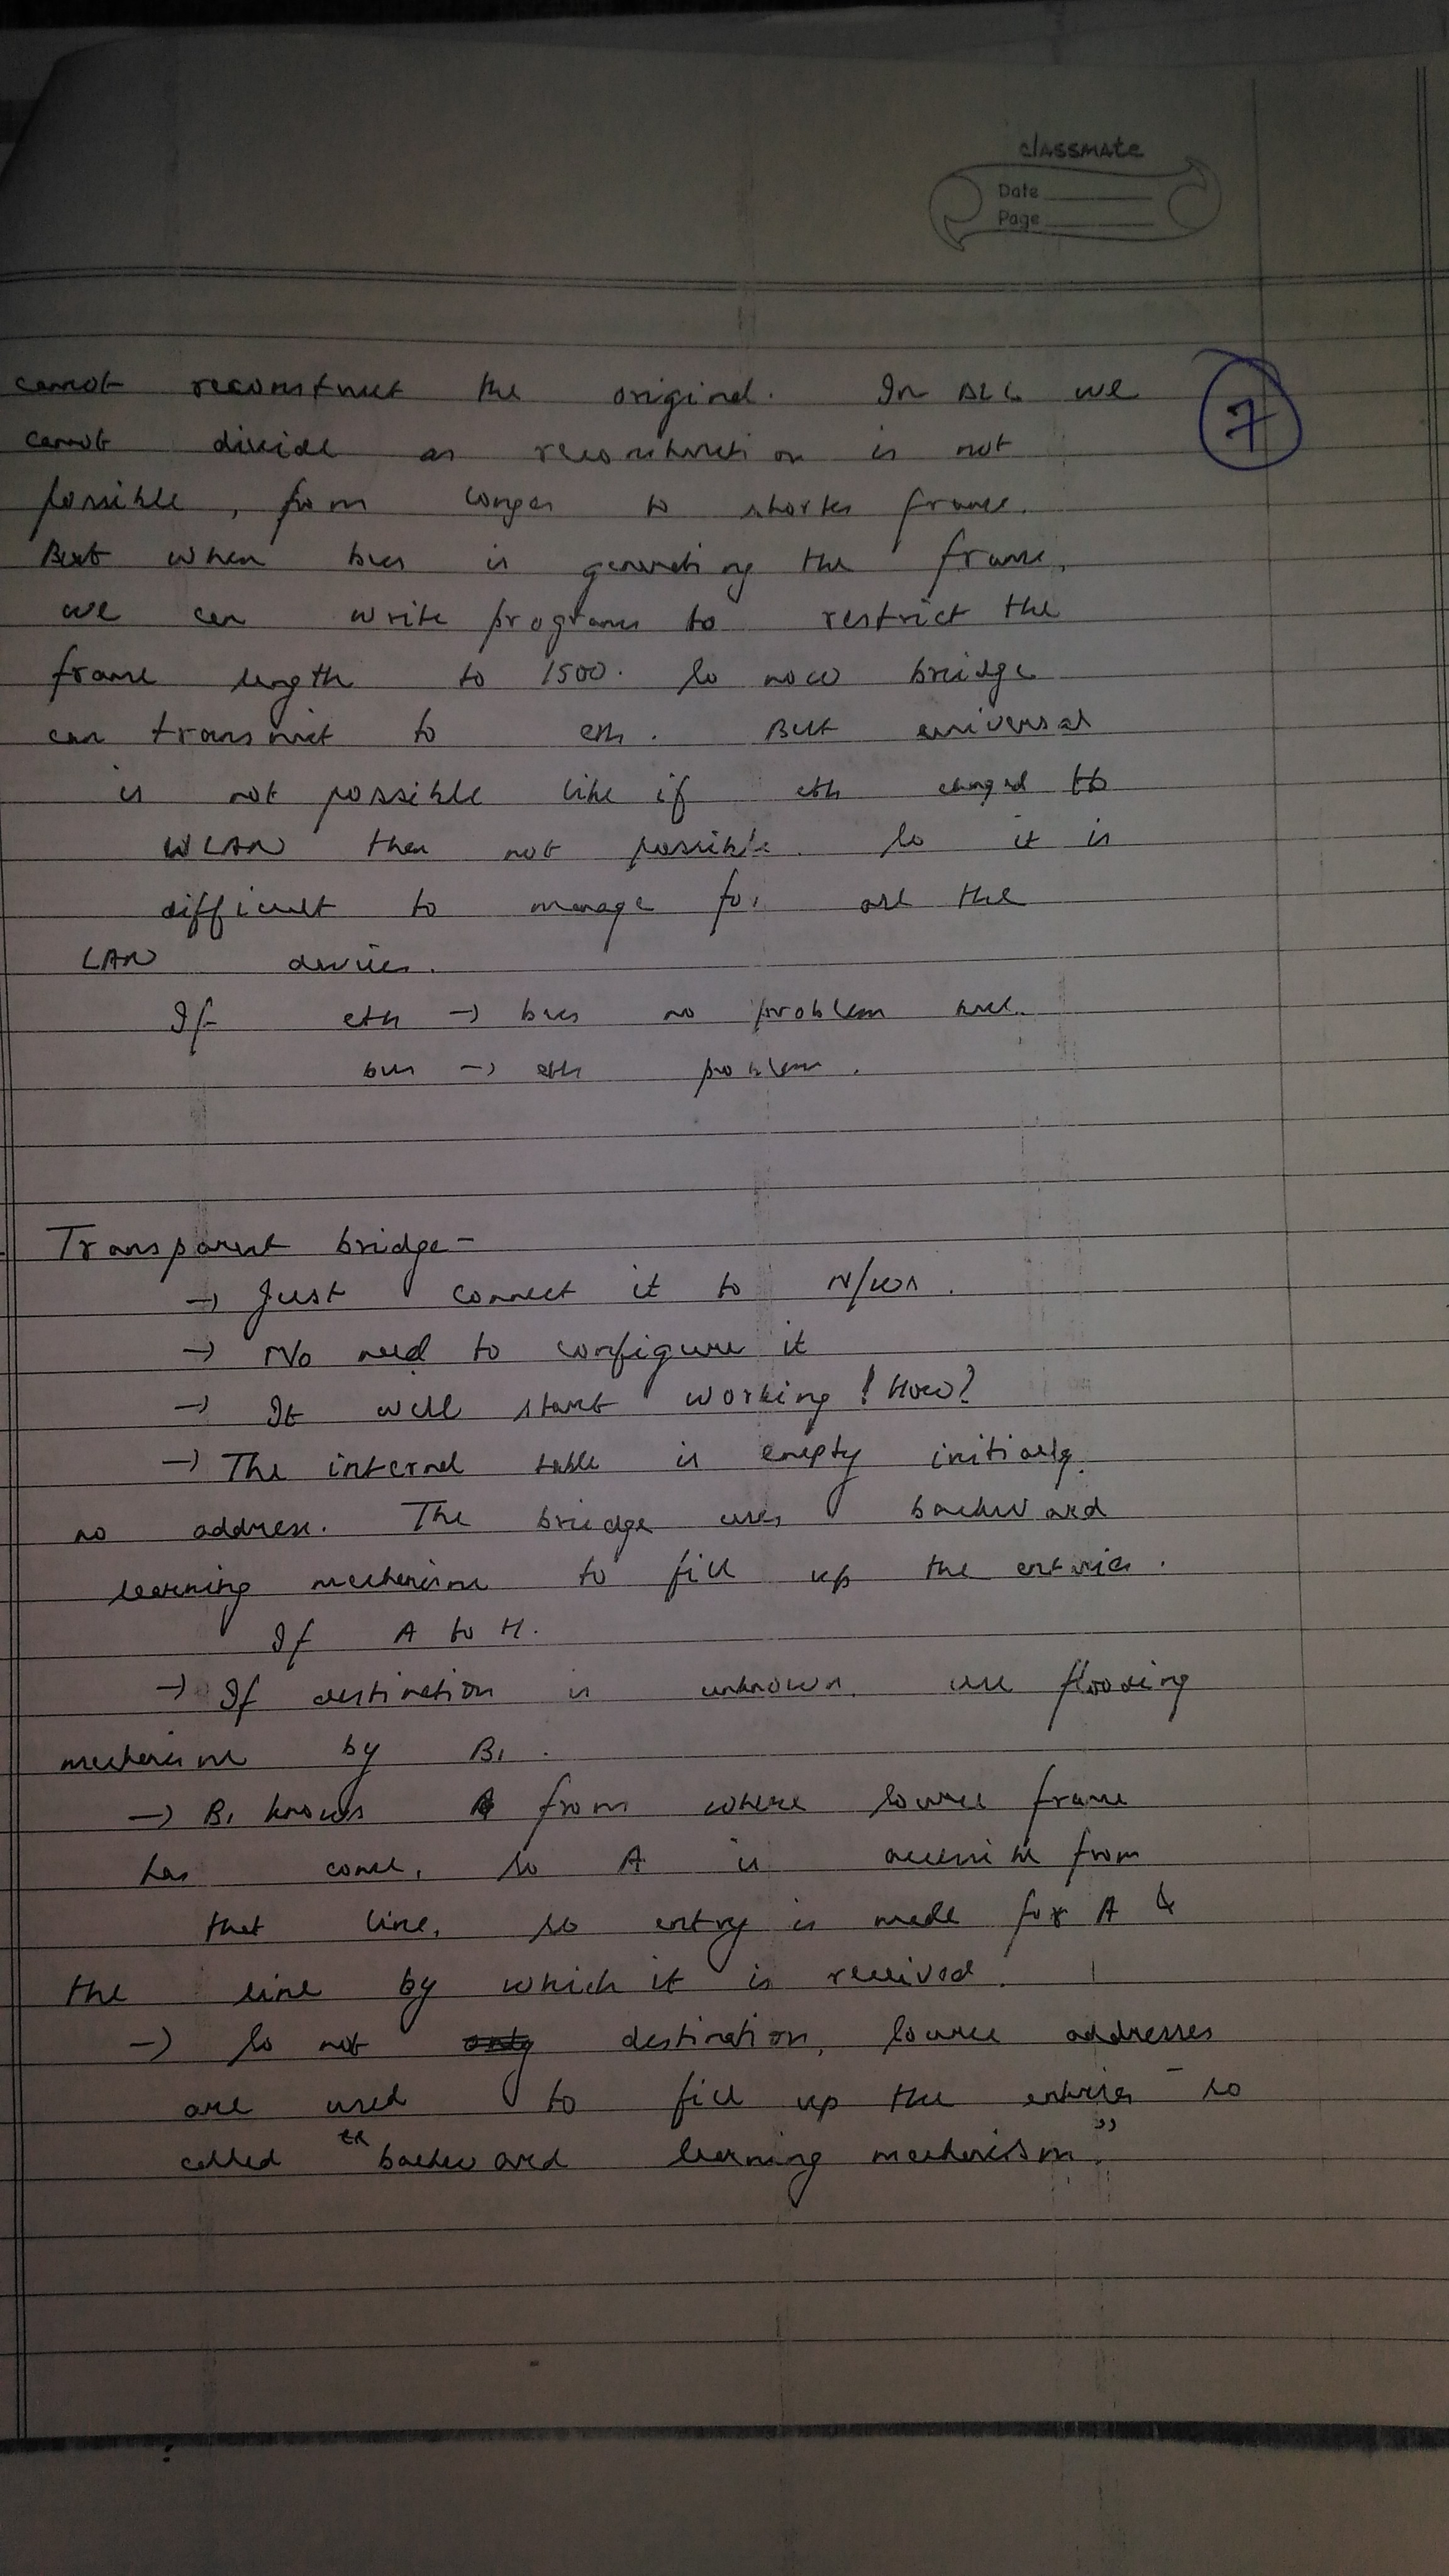 classmate
Date
Page
7
cannot reconstruct the original. In DLL we
cannot divide as reconstruction is not
possible, from longer to shorter frame.
But when bus is generating the frame,
we can write programs to restrict the
frame length to 1500. So now bridge
can transmit to eth. But universal
is not possible like if eth changed to
WLAN then not possible. So it is
difficult to manage for all the
LAN devices.
If eth → bus no problem but
bus → eth problem.
Transparent bridge-
→ Just connect it to N/Ws.
→ No need to configure it
→ It will start working! How?
→ The internal table is empty initially.
no address. The bridge uses backward
learning mechanism to fill up the entries.
If A to H.
→ If destination is unknown, use flooding
mechanism by B1.
→ B1 knows from where source frame
has come, so A is accessible from
that line, so entry is made for A &
the line by which it is received.
→ So not destination, source addresses
are used to fill up the entries - so
called "backward learning mechanism".